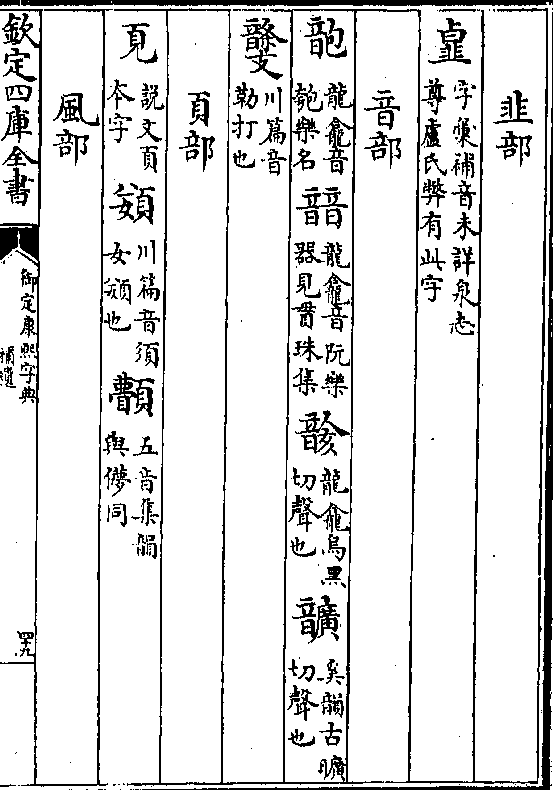 韭部
字彙補音未詳泉志
尊盧氏弊有此字
音部
龍龕音
匏樂名
龍龕音阮樂
器見貫珠集
龍龕烏黑
切聲也
奚韻古曠
切聲也
川篇音
勒打也
頁部
説文頁
本字
川篇音須
女也
五音集韻
與儚同
風部
欽定四庫全書
御定康熙字典
補遺
四十九